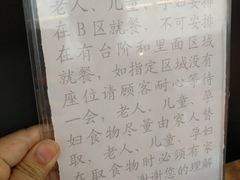 老人、儿童、孕妇安排
在B区就餐，不可安排
在有台阶和里面区域
就餐，如指定区域没有
座位请顾客耐心等待
一会，老人、儿童、孕
妇食物尽量由家人替
取，老人、儿童、孕妇
在取食物时必须有家
谢谢您的理解